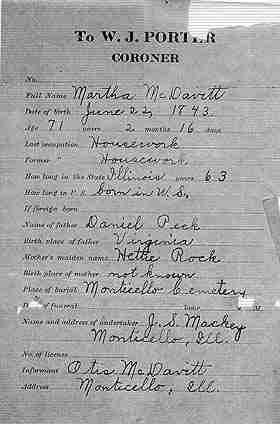 To W. J. PORTER
CORONER
No.
Full Name Martha McDavitt
Date of birth June 22, 1843.
Age 71 years 2 months 16 days
Last occupation Housework
Former " Housework
How long in the State Illinois years 63
How long in U. S. born in U.S.
If foreign born
Name of father Daniel Peck
Birth place of father Virginia
Mother's maiden name Hettie Rock
Birth place of mother not known
Place of burial Monticello Cemetery
Date of funeral hour M.
Name and address of undertaker J. S. Mackey
Monticello, Ill.
No. of license
Informant Otis McDavitt
Address Monticello, Ill.